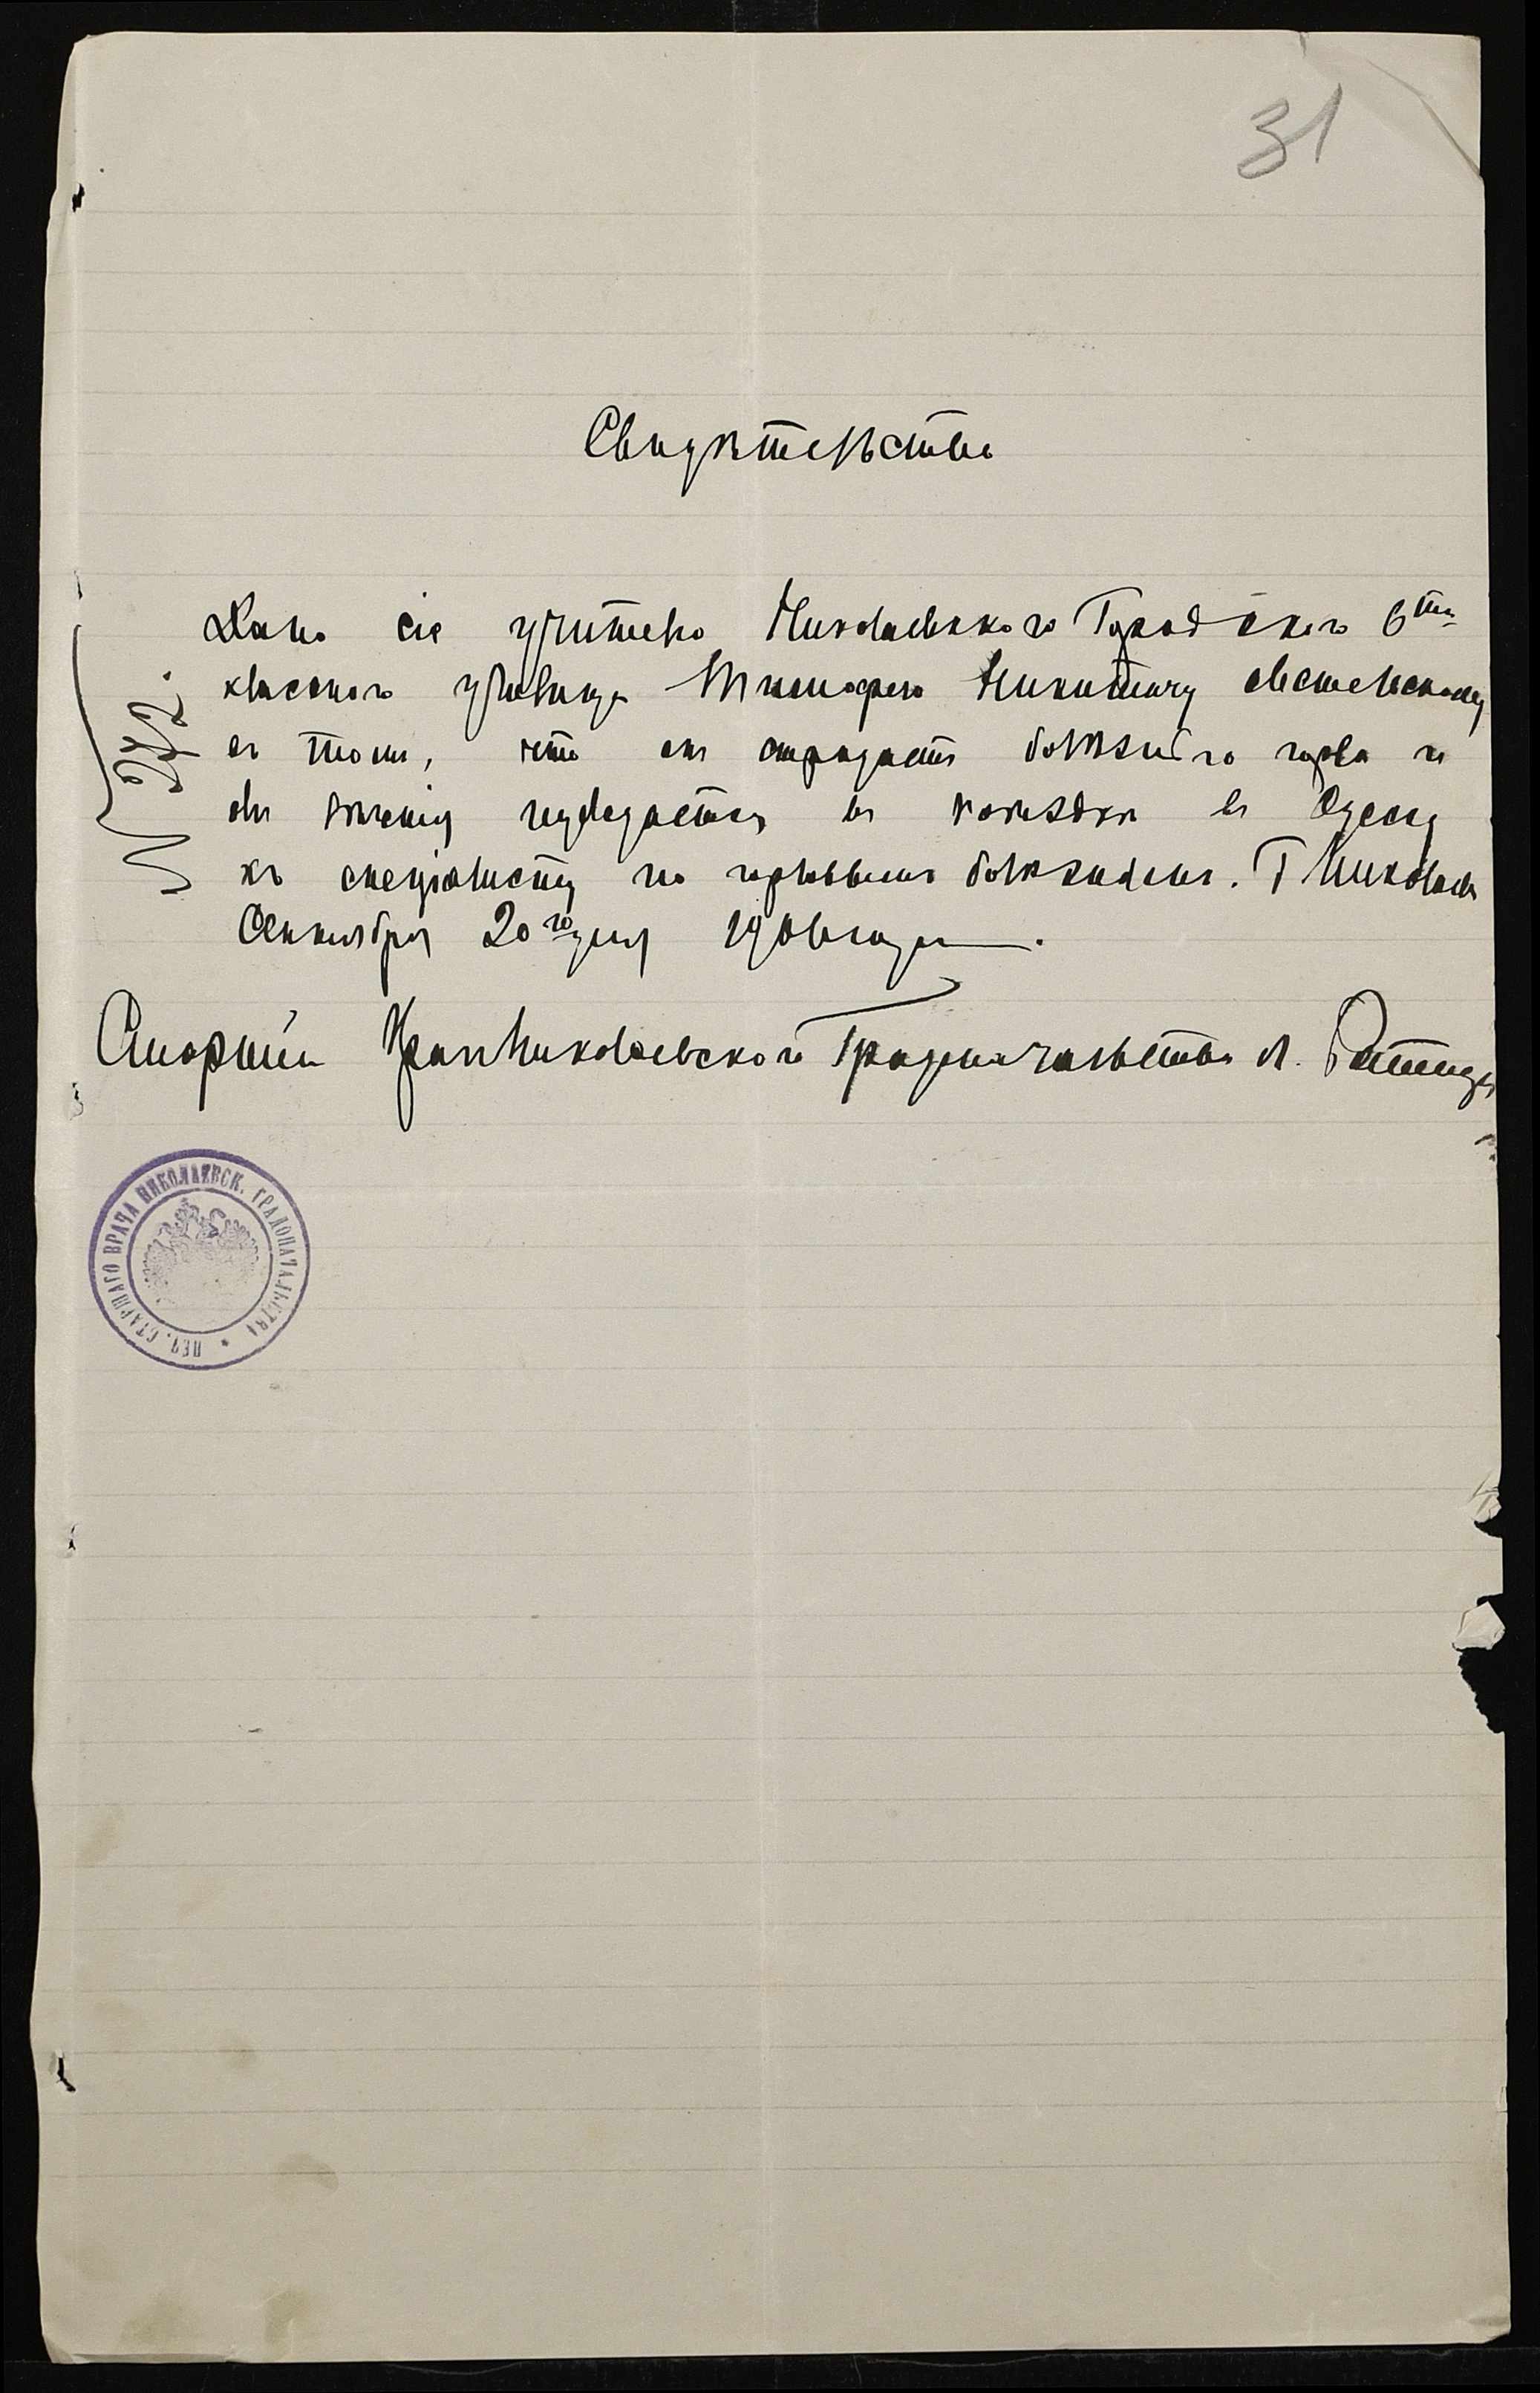 31
Свидѣтельство
Дано сіе учителю Николаевскаго Городского 6ти
класснаго училища Тимофею Никитичу
въ томъ, что онъ страдаетъ болѣзнію горла и
для лѣченія нуждается въ поѣздкѣ въ Одессу
къ спеціалисту по горловымъ болѣзнямъ. Г Николаевъ
Сентября 20го дня года.
Старшій Врач Николаевского Градоначальства Л.
ПЕЧ. СТАРШАГО ВРАЧА НИКОЛАЕВСК. ГРАДОНАЧАЛЬСТВА